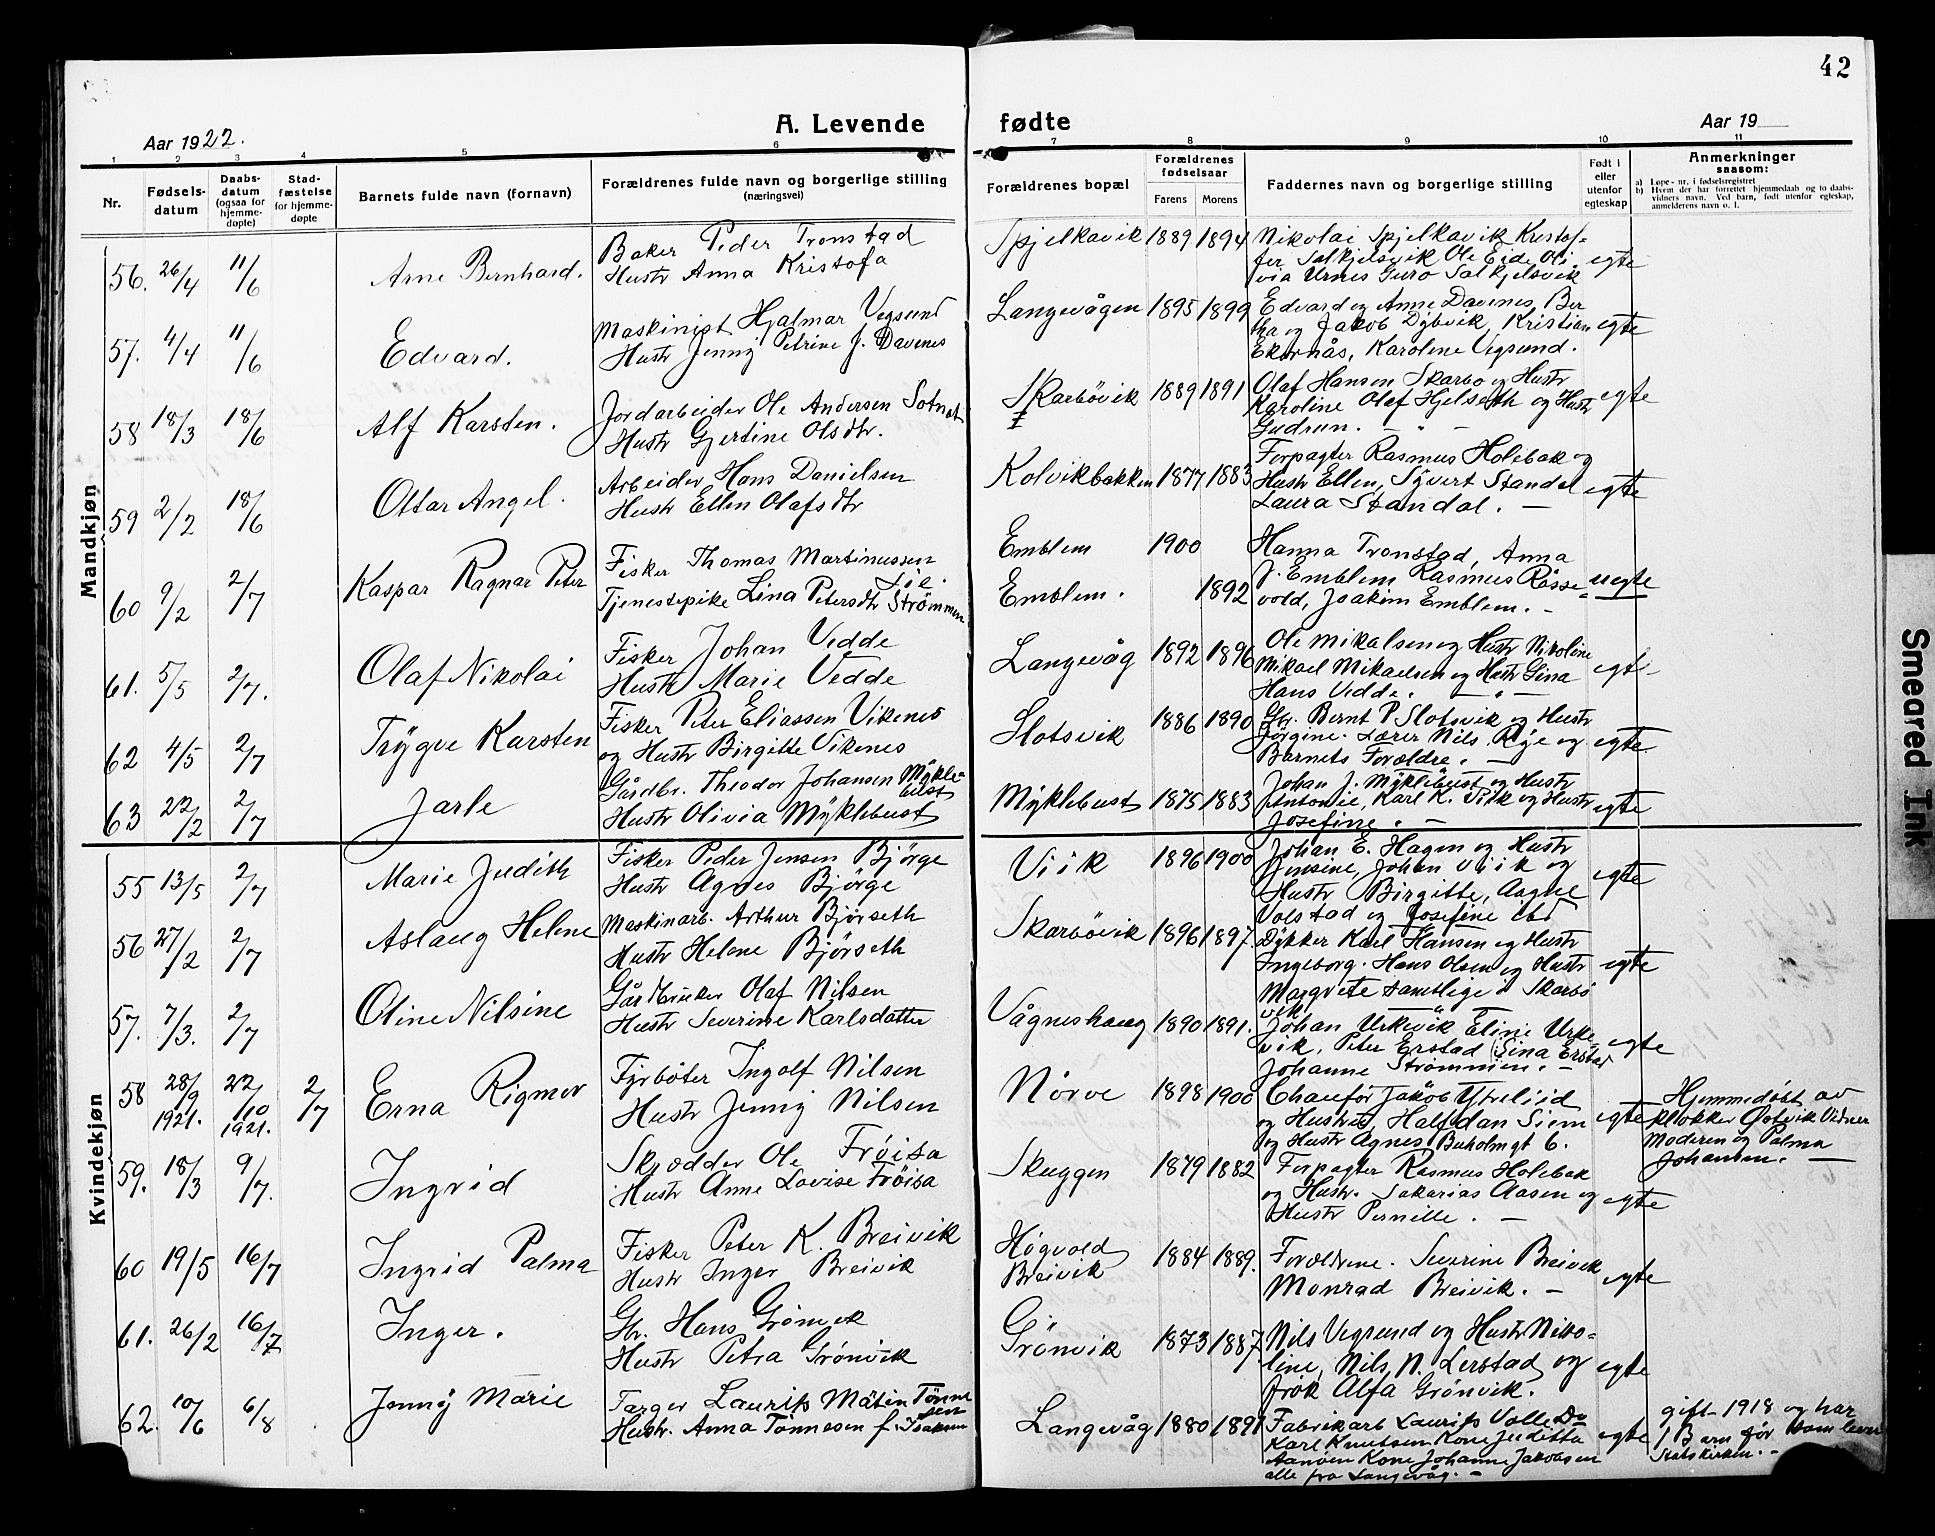 42
Aar 1922.
A. Levende fødte
Aar 19
1 2 3 4 5 6 7 8 9 10 11
Nr.
Fødsels-
datum
Daabs-
datum
(ogsaa for
hjemme-
døpte)
Stad-
fæstelse
for hjemme-
døpte
Barnets fulde navn (fornavn)
Forældrenes fulde navn og borgerlige stilling
(næringsvei)
Forældrenes bopæl
Forældrenes
fødselsaar
Farens Morens
Faddernes navn og borgerlige stilling
Født i
eller
utenfor
egteskap
Anmerkninger
saasom:
a) Løpe-nr. i fødselsregistret
b) Hvem der har forrettet hjemmedaab og to daabs-
vidners navn. Ved barn, født utenfor egteskap,
anmelderens navn o. l.
Mandkjøn
56. 26/4 11/6 Arne Bernhard.
Baker Peder Tronstad
Hustr Anna Kristofa
Spjelkavik 1889 1894
Nikolai Spjelkavik Kristof-
fer Salkjelsvik Ole Eide Oli
via Urnes Guro Salkjelsvik
egte
57. 4/4 11/6 Edvard.
Maskinist Hjalmar Vegsund
Hustr Jenny Petrine J. Davenes
Langevågen 1895 1899
Edvard og Anne Davenes, Ber
tha og Jakob Dybvik, Kristian
Ekornås, Karoline Vegsund.
egte
58 18/3 18/6 Alf Karsten.
Jordarbeider Ole Andersen Sotnak
Hustr Gjertine Olsdtr.
Skarbövik 1889 1891
Olaf Hansen Skarbö og Hustr
Karoline Olaf Hjelseth og Hustr
Gudrun. — " —
egte
59 2/2 18/6 Ottar Angel.
Arbeider Hans Danielsen
Hustr Ellen Olafsdtr
Kolvikbakken 1877 1883
Forpagter Rasmus Holebak og
Hustr Ellen, Syvert Standal
Laura Standal. —
egte
60 9/2 2/7 Kaspar Ragnar Peter
Fisker Thomas Martinussen
Tjenestepike Lina Petersdtr Strömmen
Emblem 1900
Emblem. 1892
Hanna Tronstad, Anna
J. Emblem Rasmus Rösse-
vold, Joakim Emblem. —
uegte
61. 5/5 2/7. Olaf Nikolai
Fisker Johan Vedde
Hustr Marie Vedde
Langevåg 1892 1896
Ole Mikalsen og Hustr Nikoline
Mikael Mikaelsen og Hustr Gina
Hans Vedde. — " —
egte
62 4/5 2/7 Trygve Karsten
Fisker Peter Eliassen Vikenes
og Hustr Birgitte Vikenes
Slotsvik 1886 1890
Gbr. Bernt P Slotsvik og Hustr
Jörgine. Lærer Nils Rye og
Barnets Forældre. —
egte
63 22/2 2/7 Jarle
Gårdbr. Theodor Johansen Mykle-
bust
Hustr Olivia Myklebust
Myklebust 1875 1883
Johan J. Myklebust og Hustr
Antonie, Karl K. Vik og Hustr
Josefine. —
egte
Kvindekjøn
55 13/5 2/7 Marie Judith
Fisker Peder Jensen Bjørge
Hustr Agnes Bjørge
Viik 1896 1900
Johan E. Hagen og Hustr
Jensine, Johan Viik og
Hustr Birgitte, Aagne
Volstad og Josefine ibd
egte
56 27/2 2/7 Aslaug Helene
Maskinarb. Arthur Bjørseth
Hustr Helene Bjørseth
Skarbövik 1896 1897.
Dykker Karl Hansen og Hustr
Ingeborg. Hans Olsen og Hustr
Margrete samtlige i Skarbö
vik.
egte
57. 7/3. 2/7 Oline Nilsine
Gårdbruker Olaf Nilsen
Hustr Severine Karlsdatter
Vågneshaug 1890 1891.
Johan Urkevik Eline Urke
vik, Peter Erstad, Sina Erstad
Johanne Strömmen. —
egte
58 28/9 1921. 22/10 1921. 2/7 Erna Rigmor
Fyrböter Ingolf Nilsen
Hustr Jenny Nilsen
Nörve 1898 1900
Chauför Jakob Ytrelid
og Hustr, Halfdan Siem
og Hustr Agnes, Buholmgt 6.
egte
Hjemmedöbt av
klokker Östvik Vidner
Moderen og Palma
Johansen. —
59. 18/3 9/7. Ingrid
Skrædder Ole Fröisa
Hustr Anne Lovise Fröisa
Skuggen 1879 1882
Forpagter Rasmus Holebak
og Hustr. Sakarias Aasen og
Hustr Pernille. —
egte
60 19/5 16/7 Ingrid Palma
Fisker Peter K. Breivik
Hustr Inger Breivik
Högvold
Breivik 1884 1889.
Forældrene. Severine Breivik
Monrad Breivik. —
egte
61. 26/2 16/7 Inger.
Gbr. Hans Grönvik
Hustr Petra Grönvik
Grönvik 1873 1887
Nils Vegsund og Hustr Niko-
line, Nils N. Lerstad og
frök Alfa Grönvik.
egte
62. 10/6 6/8 Jenny Marie
Farger Laurits Måtin Tönne
sen
Hustr. Anna Tönnesen f. Isaksen
Langevåg 1880 1891
Fabrikarb Laurits Volle Do
Karl Knutsen Kone Juditta
Aanöen Kone Johanne Jakobsen
alle fra Langevåg. —
egte
gift 1918 og har
1 Barn för som lever
Statskirken. —
Smeared Ink